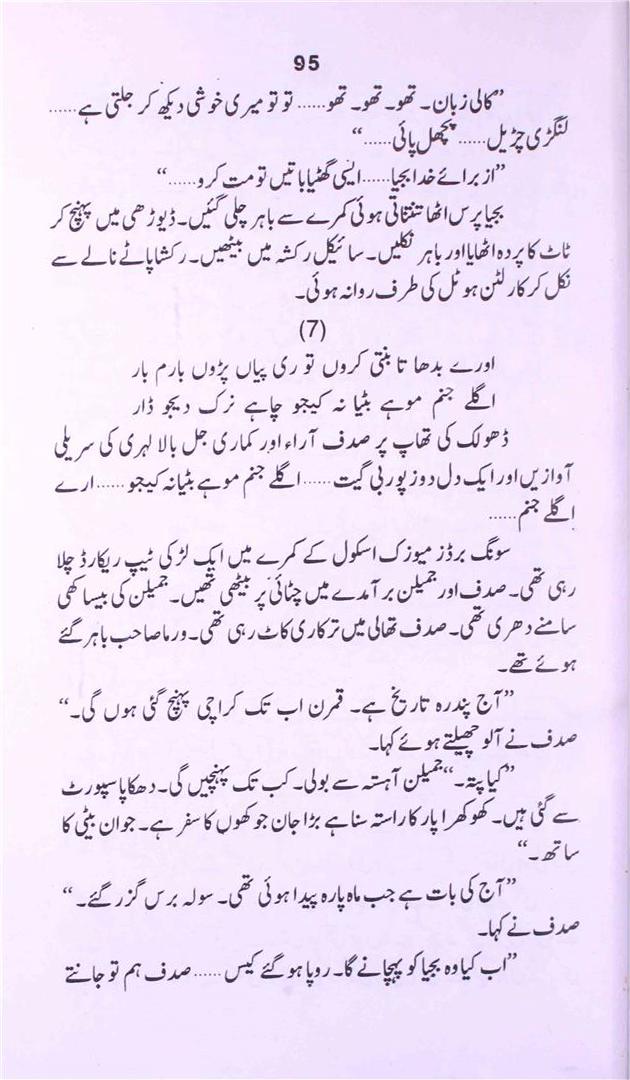 95
”کالی زبان۔ تھو۔ تھو۔ تھو...... تو تو میری خوشی دیکھ کر جلتی ہے......
لنگڑی چڑیل...... پچھل پائی......“
”از برائے خدا بجیا...... ایسی گھٹیا باتیں تو مت کرو......“
بجیا پرس اٹھا تنتناتی ہوئی کمرے سے باہر چلی گئیں۔ ڈیوڑھی میں پہنچ کر
ٹاٹ کا پردہ اٹھایا اور باہر نکلیں۔ سائیکل رکشہ میں بیٹھیں۔ رکشا پاٹے نالے سے
نکل کر کارلٹن ہوٹل کی طرف روانہ ہوئی۔
(7)
اورے بدھاتا بنتی کروں توری پیاں پڑوں بارم بار
اگلے جنم موہے بٹیا نہ کیجو چاہے نرک دیجو ڈار
ڈھولک کی تھاپ پر صدف آراء اور کماری جل بالا لہری کی سریلی
آوازیں اور ایک دل دوز پوربی گیت...... اگلے جنم موہے بٹیا نہ کیجو...... ارے
اگلے جنم......
سونگ برڈز میوزک اسکول کے کمرے میں ایک لڑکی ٹیپ ریکارڈ چلا
رہی تھی۔ صدف اور جمیلن برآمدے میں چٹائی پر بیٹھی تھیں۔ جمیلن کی بیساکھی
سامنے دھری تھی۔ صدف تھالی میں ترکاری کاٹ رہی تھی۔ ورما صاحب باہر گئے
ہوئے تھے۔
”آج پندرہ تاریخ ہے۔ قمرن اب تک کراچی پہنچ گئی ہوں گی۔“
صدف نے آلو چھیلتے ہوئے کہا۔
”کیا پتہ۔“ جمیلن آہستہ سے بولی۔ کب تک پہنچیں گی۔ دھکا پاسپورٹ
سے گئی ہیں۔ کھوکھرا پار کا راستہ سنا ہے بڑا جان جوکھوں کا سفر ہے۔ جوان بیٹی کا
ساتھ۔“
”آج کی بات ہے جب ماہ پارہ پیدا ہوئی تھی۔ سولہ برس گزر گئے۔“
صدف نے کہا۔
”اب کیا وہ بجیا کو پہچانے گا۔ روپا ہو گئے کیس...... صدف ہم تو جانتے